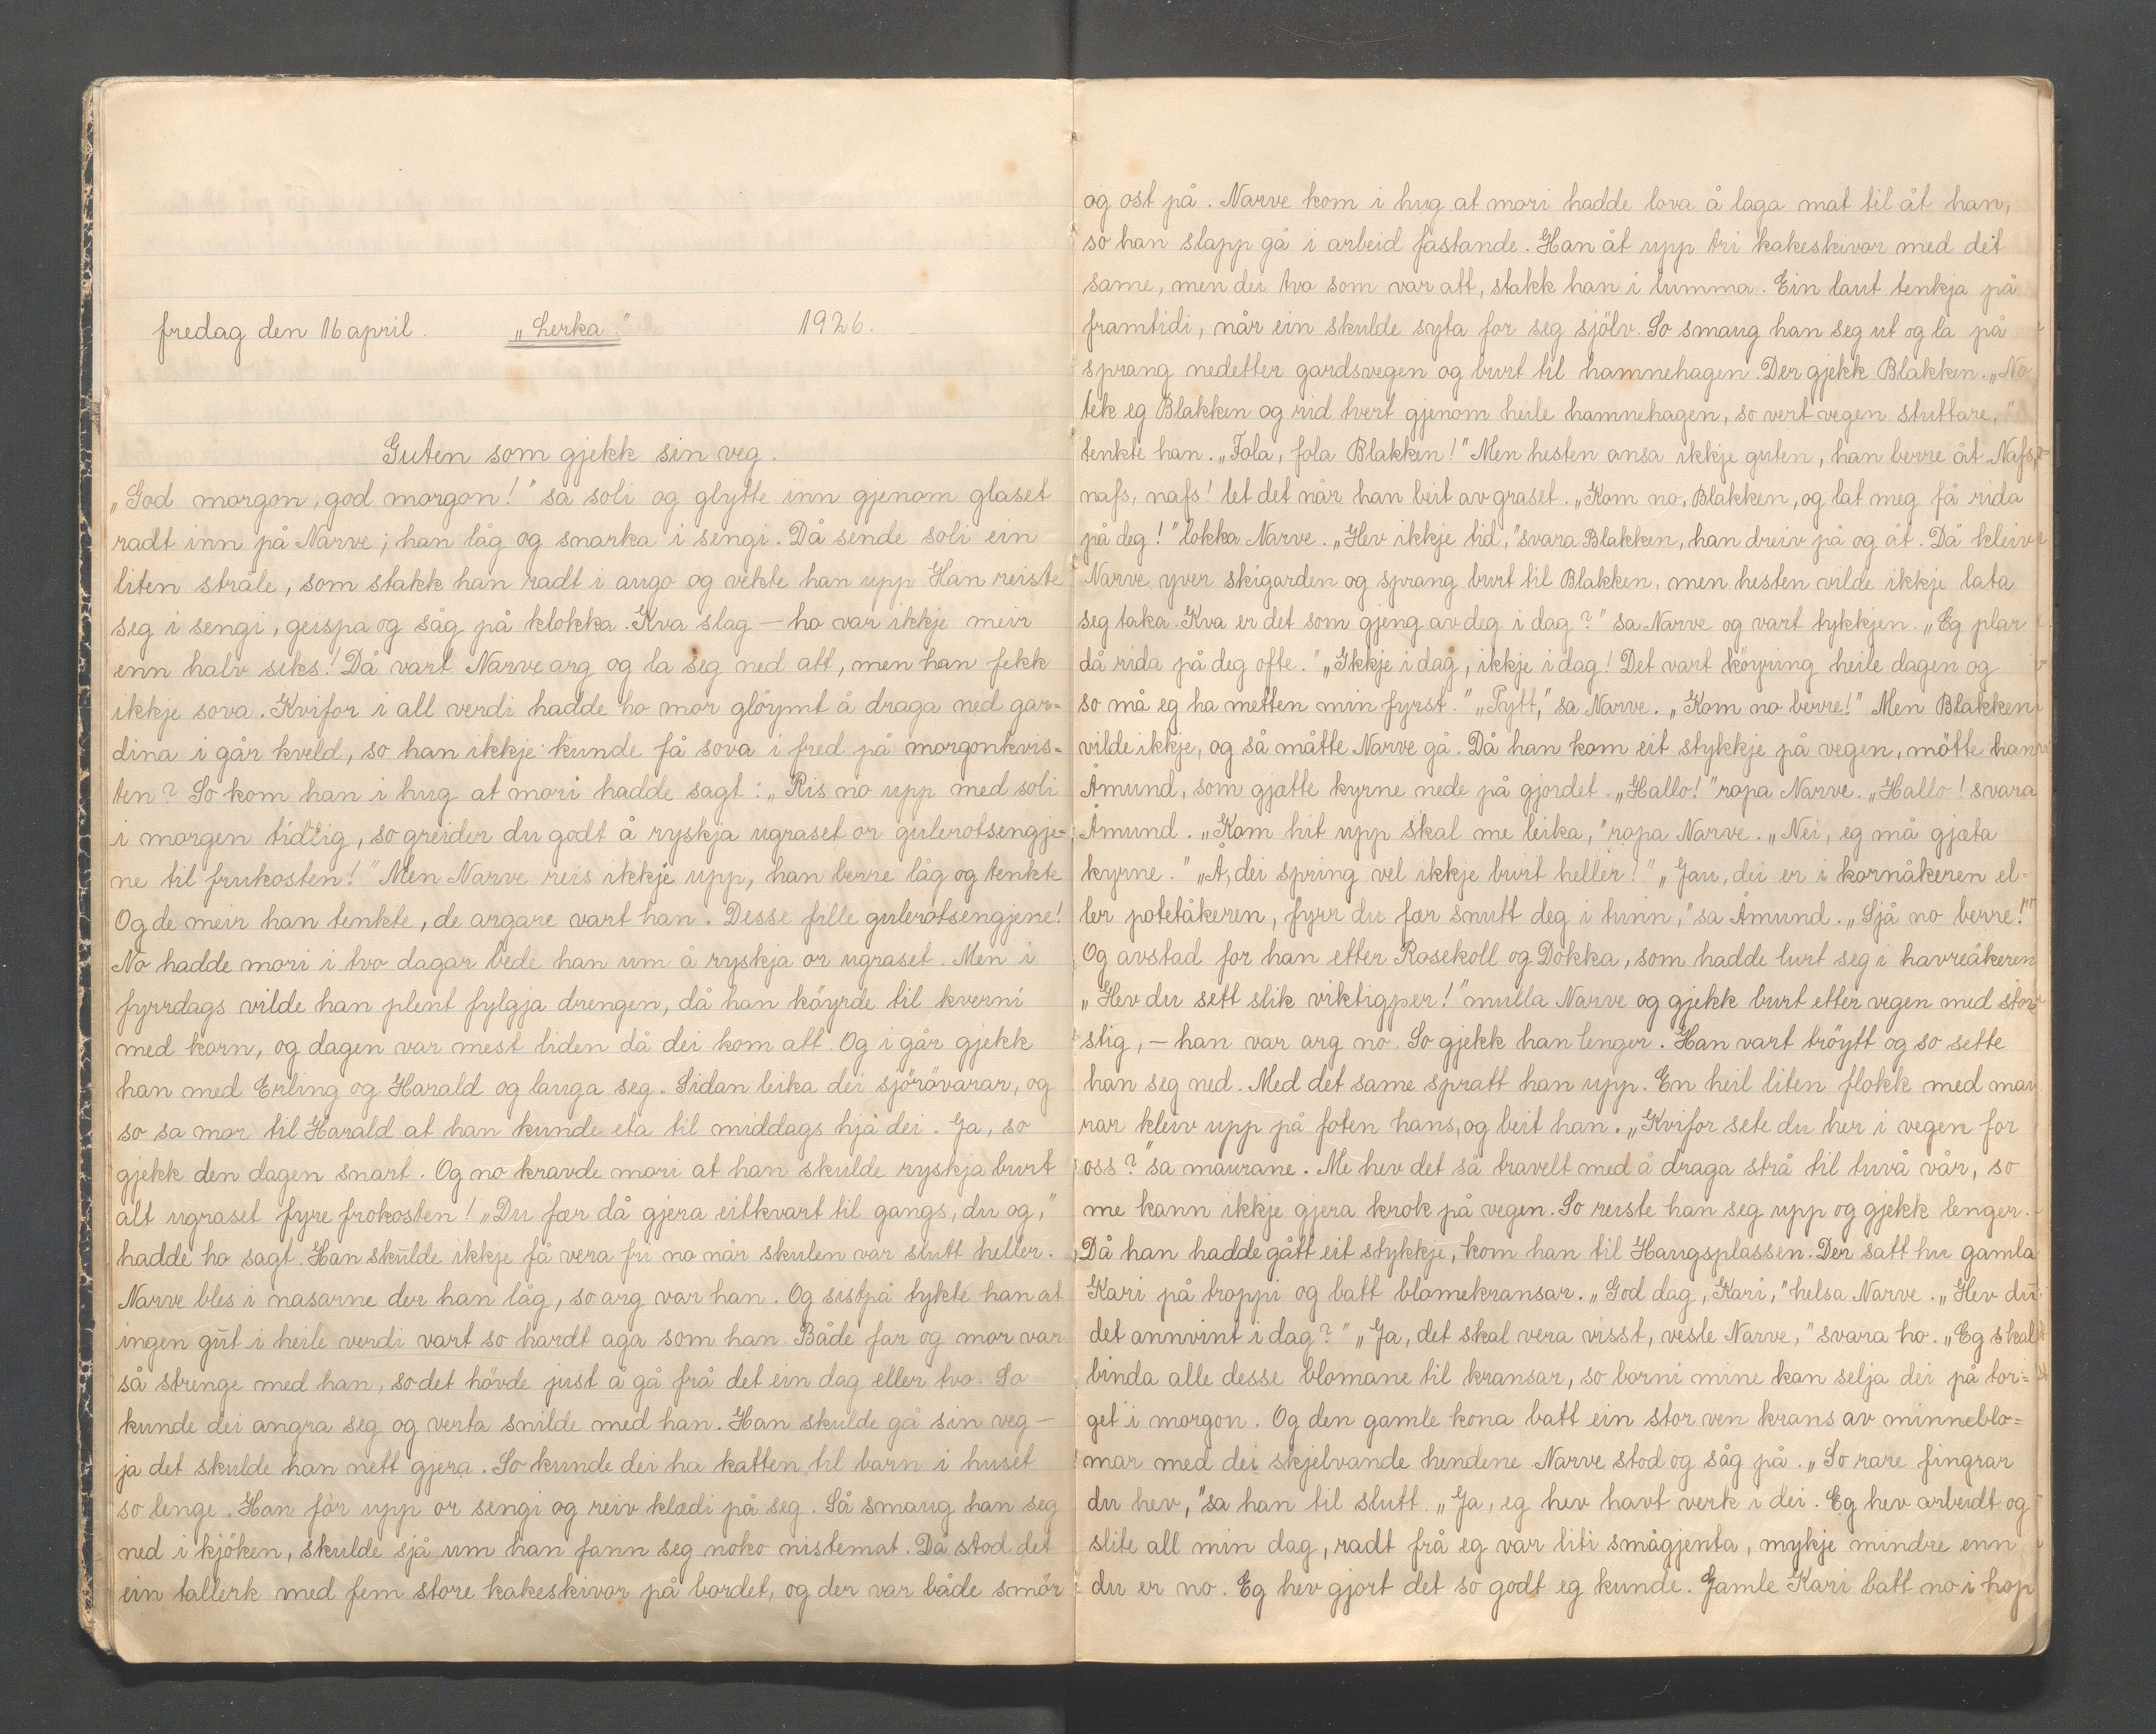 fredag den 16 april. „Lerka." 1926.
Guten som gjekk sin veg.
„God morgon, god morgon!" sa soli og glytte inn gjenom glaset
radt inn på Narve; han låg og snarka i sengi. Då sende soli ein
liten stråle, som stakk han radt i augo og vekte han upp. Han reiste
seg i sengi, geispa og såg på klokka. Kva slag – ho var ikkje meir
enn halv seks! Då vart Narve arg og la seg ned att, men han fekk
ikkje sova. Kvifor i all verdi hadde ho mor glöymt å draga ned gar=
dina i går kveld, so han ikkje kunde få sova i fred på morgonkvis=
ten? So kom han i hug at mori hadde sagt: „Ris no upp med soli
i morgen tidlig, so greider du godt å ryskja ugraset or gulerotsengje=
ne til frukosten!" Men Narve reis ikkje upp, han berre låg og tenkte
Og de meir han tenkte, de argare vart han. Desse fille gulerotsengjene!
No hadde mori i tvo dagar bede han um å ryskja or ugraset. Men i
fyrrdags vilde han plent fylgja drengen, då han köyrde til kverni
med korn, og dagen var mest liden då dei kom att. Og i går gjekk
han med Erling og Harald og lauga seg. Sidan leika dei sjörövarar, og
so sa mor til Harald at han kunde eta til middags hjå dei. Ja, so
gjekk den dagen snart. Og no kravde mori at han skulde ryskja burt
alt ugraset fyre frokosten! „Du fær då gjera eitkvart til gangs, du og,"
hadde ho sagt. Han skulde ikkje få vera fri no når skulen var slutt heller.
Narve bles i nasarne der han låg, so arg var han. Og sistpå tykte han at
ingen gut i heile verdi vart so hardt aga som han. Både far og mor var
så strenge med han, so det hövde just å gå frå det ein dag eller tvo. So
kunde dei angra seg og verta snilde med han. Han skulde gå sin veg –
ja det skulde han nett gjera. So kunde dei ha katten til barn i huset
so lenge. Han fór upp or sengi og reiv klædi på seg. Så smaug han seg
ned i kjöken, skulde sjå um han fann seg noko nistemat. Då stod det
ein tallerk med fem store kakeskivor på bordet, og der var både smör
og ost på. Narve kom i hug at mori hadde lova å laga mat til åt han,
so han slapp gå i arbeid fastande. Han åt upp tri kakeskivor med det
same, men dei tvo som var att, stakk han i lumma. Ein laut tenkja på
framtidi, når ein skulde syta for seg sjölv. So smaug han seg ut og la på
sprang nedetter gardsvegen og burt til hamnehagen. Der gjekk Blakken. „No
tek eg Blakken og rid tvert gjenom heile hamnehagen, so vert vegen stuttare,"
tenkte han. „Fola, fola Blakken!" Men hesten ansa ikkje guten, han berre åt. Nafs,
nafs, nafs! let det når han beit av graset. „Kom no, Blakken, og lat meg få rida
på deg!" lokka Narve. „Hev ikkje tid," svara Blakken, han dreiv på og åt. Då kleiv
Narve yver skigarden og sprang burt til Blakken, men hesten vilde ikkje lata
seg taka. Kva er det som gjeng av deg i dag?" sa Narve og vart tykkjen. „Eg plar
då rida på deg ofte." „Ikkje i dag, ikkje i dag! Det vart köyring heile dagen og
so må eg ha metten min fyrst." „Tytt," sa Narve. „Kom no berre!" Men Blakken
vilde ikkje, og så måtte Narve gå. Då han kom eit stykkje på vegen, mötte han
Åmund, som gjætte kyrne nede på gjordet. „Hallo!" ropa Narve. „Hallo! svara
Åmund. „Kom hit upp skal me leika," ropa Narve. „Nei, eg må gjæta
kyrne." „Å, dei spring vel ikkje burt heller!" „Jau, dei er i kornåkeren el=
ler potetåkeren, fyrr du fær snutt deg i tunn," sa Åmund. „Sjå no berre!"
Og avstad for han etter Rosekoll og Dokka, som hadde lurt seg i havreåkeren
„Hev du sett slik viktigper!" mulla Narve og gjekk burt etter vegen med store
stig, – han var arg no. So gjekk han lenger. Han vart tröytt og so sette
han seg ned. Med det same spratt han upp. En heil liten flokk med mau
rar kleiv upp på foten hans, og beit han. „Kvifor sete du her i vegen for
oss?" sa maurane. Me hev det så travelt med å draga strå til tuvå vår, so
me kann ikkje gjera krok på vegen. So reiste han seg upp og gjekk lenger.
Då han hadde gått eit stykkje, kom han til Haugsplassen. Der satt hu gamla
Kari på troppi og batt blomekransar. „God dag, Kari," helsa Narve. „Hev du
det annvint i dag?" „Ja, det skal vera visst, vesle Narve," svara ho. „Eg skal
binda alle desse blomane til kransar, so borni mine kan selja dei på tor=
get i morgon. Og den gamle kona batt ein stor ven krans av minneblo=
mar med dei skjelvande hendene. Narve stod og såg på. „So rare fingrar
du hev," sa han til slutt. „Ja, eg hev havt verk i dei. Eg hev arbeidt og
slite all min dag, radt frå eg var liti smågjenta, mykje mindre enn
du er no. Eg hev gjort det so godt eg kunde. Gamle Kari batt no i hop